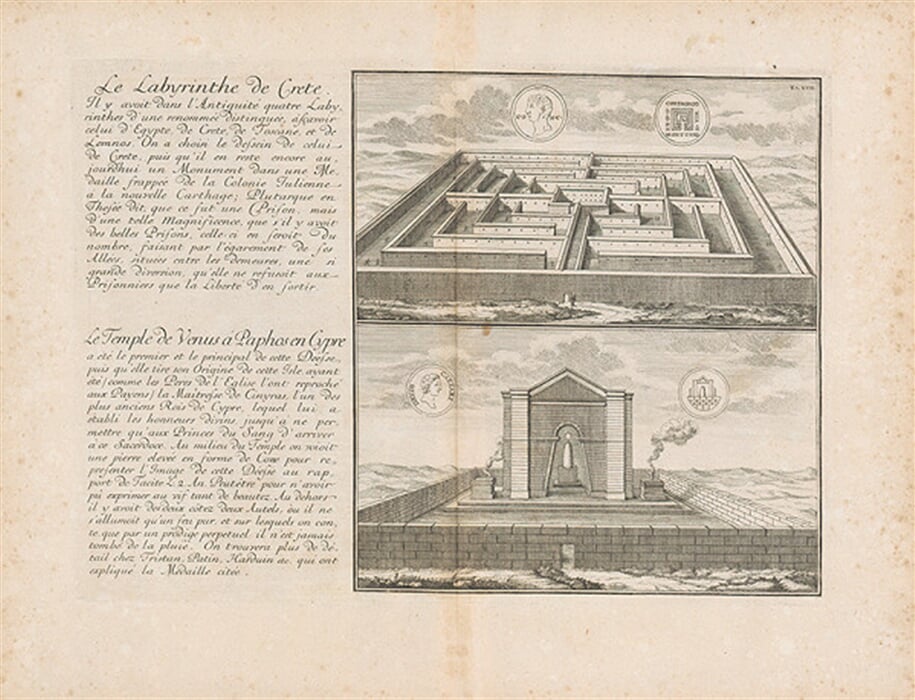 Le Labyrinthe de Crete.
Il y avoit dans l'Antiquité quatre Laby-
rinthes d'une renommée distinguée, asçavoir
celui d'Egypte, de Crete, de Toscane, et de
Lemnos. On a choisi le dessein de celui
de Crete, puis qu'il en reste encore au-
jourdhui un Monument dans une Me-
daille frappée de la Colonie Iulienne
a la nouvelle Carthage; Plutarque en
Thesée dit, que ce fut une Prison, mais
d'une telle Magnificence, que s'il y avoit
des belles Prisons, celle ci en seroit du
nombre, faisant par l'égarement de ses
Allées, situées entre les demeures, une si
grande diversion, qu'elle ne refusoit aux
Prisonniers que la Liberté d'en sortir.
Le Temple de Venus à Paphos en Cypre
a été le premier et le principal de cette Déesse,
puis qu'elle tire son Origine de cette Isle, ayant
été / comme les Peres de l'Eglise l'ont reproché
aux Payens / la Maitresse de Cinyras, l'un des
plus anciens Rois de Cypre, lequel lui a
établi les honneurs divins, jusqu'a ne per-
mettre qu'aux Princes du Sang d'arriver
a ce Sacerdoce. Au milieu du Temple on voioit
une pierre elevée en forme de Cone pour re-
presenter l'Image de cette Déesse au rap-
port de Tacite L. 2. An. Peutétre pour n'avoir
pû exprimer au vif tant de beautez. Au dehors
il y avoit des deux côtez deux Autels, où il ne
s'allumoit qu'un feu pur, et sur lesquels on con-
te, que par un prodige perpetuel il n'est jamais
tombé de la pluie. On trouvera plus de dé-
tail chez Tristan, Patin, Harduin &c. qui ont
expliqué la Médaille citée.